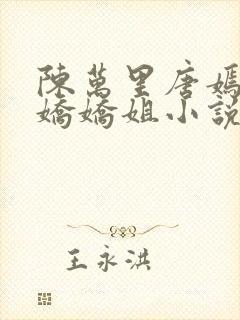 陳萬里唐嫣
嬌嬌姐小說
王永洪